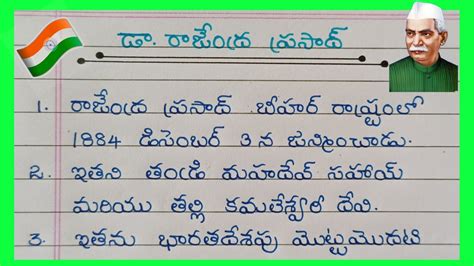 డా. రాజేంద్ర ప్రసాద్
1. రాజేంద్ర ప్రసాద్ బీహార్ రాష్ట్రంలో
1884 డిసెంబర్ 3 న జన్మించాడు.
2. ఇతని తండ్రి మహదేవ్ సహాయ్
మరియు తల్లి కమలేశ్వరీ దేవి.
3. ఇతను భారతదేశపు మొట్టమొదటి